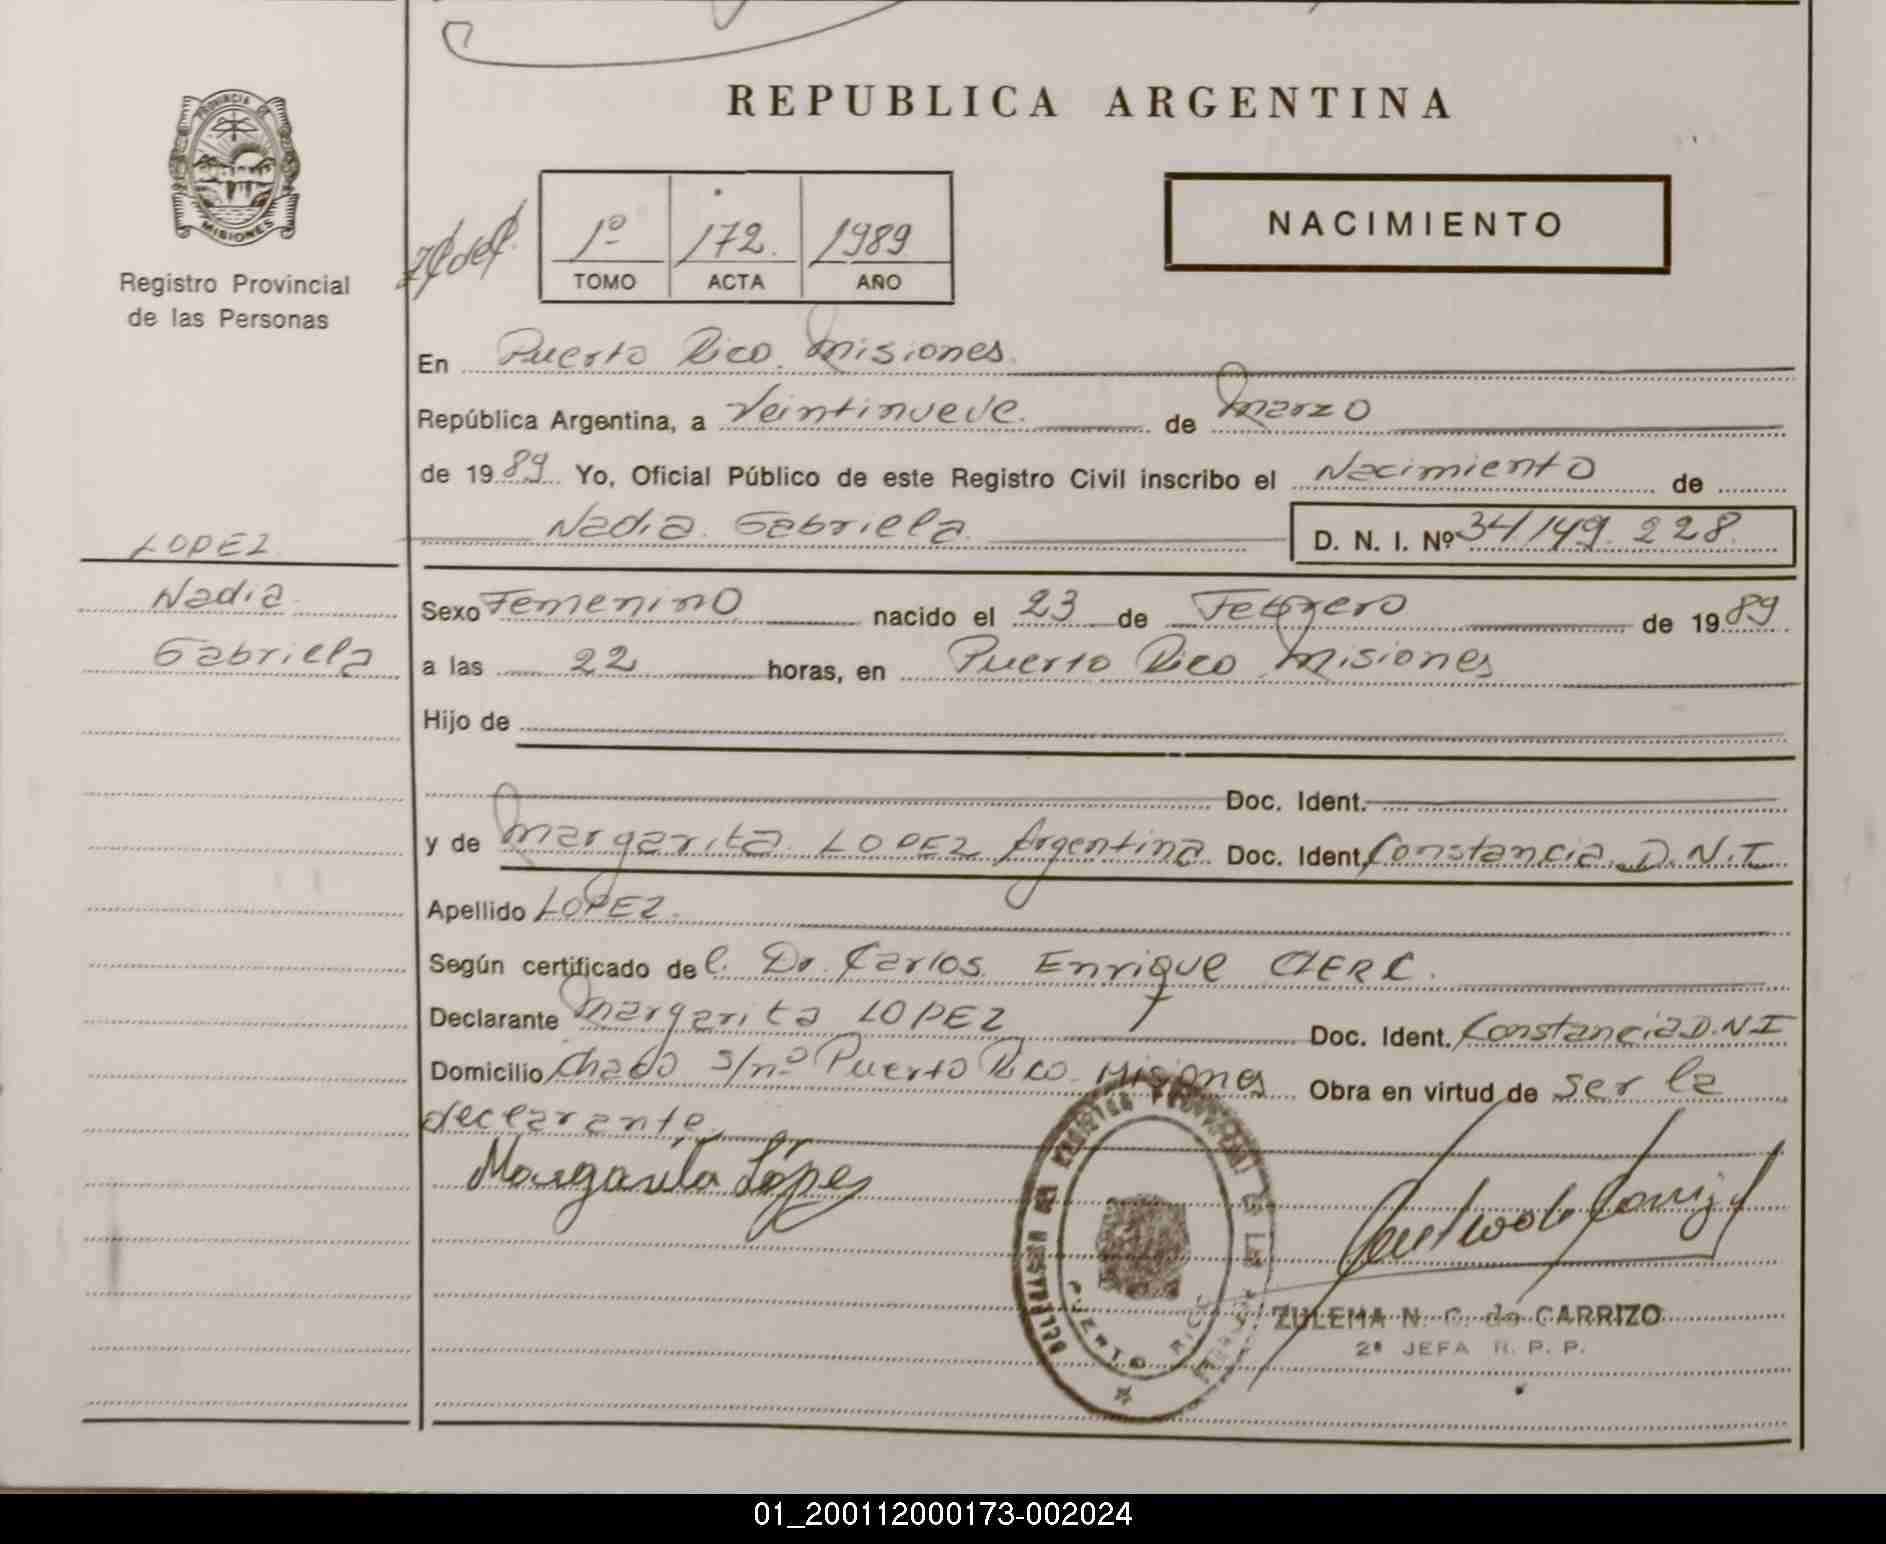 REPUBLICA ARGENTINA
PROVINCIA DE
MISIONES
Registro Provincial
de las Personas
1º 172. 1989
TOMO ACTA AÑO
NACIMIENTO
En Puerto Rico Misiones
República Argentina, a Veintinueve de Marzo
de 1989 Yo, Oficial Público de este Registro Civil inscribo el Nacimiento de
Nadia Gabriela D. N. I. Nº 34.149.228
LOPEZ
Nadia
Gabriela
Sexo Femenino nacido el 23 de Febrero de 1989
a las 22 horas, en Puerto Rico Misiones
Hijo de
Doc. Ident.
y de Margarita LOPEZ Argentina Doc. Ident. Constancia D.N.I
Apellido LOPEZ.
Según certificado del Dr. Carlos Enrique CLERC.
Declarante Margarita LOPEZ Doc. Ident. Constancia D.N.I
Domicilio s/nº Puerto Rico Misiones Obra en virtud de ser la
declarante
Margarita López
REGISTRO PROVINCIAL DE LAS
PUERTO RICO
ZULEMA N. C. de CARRIZO
2ª JEFA R. P. P.
01_200112000173-002024